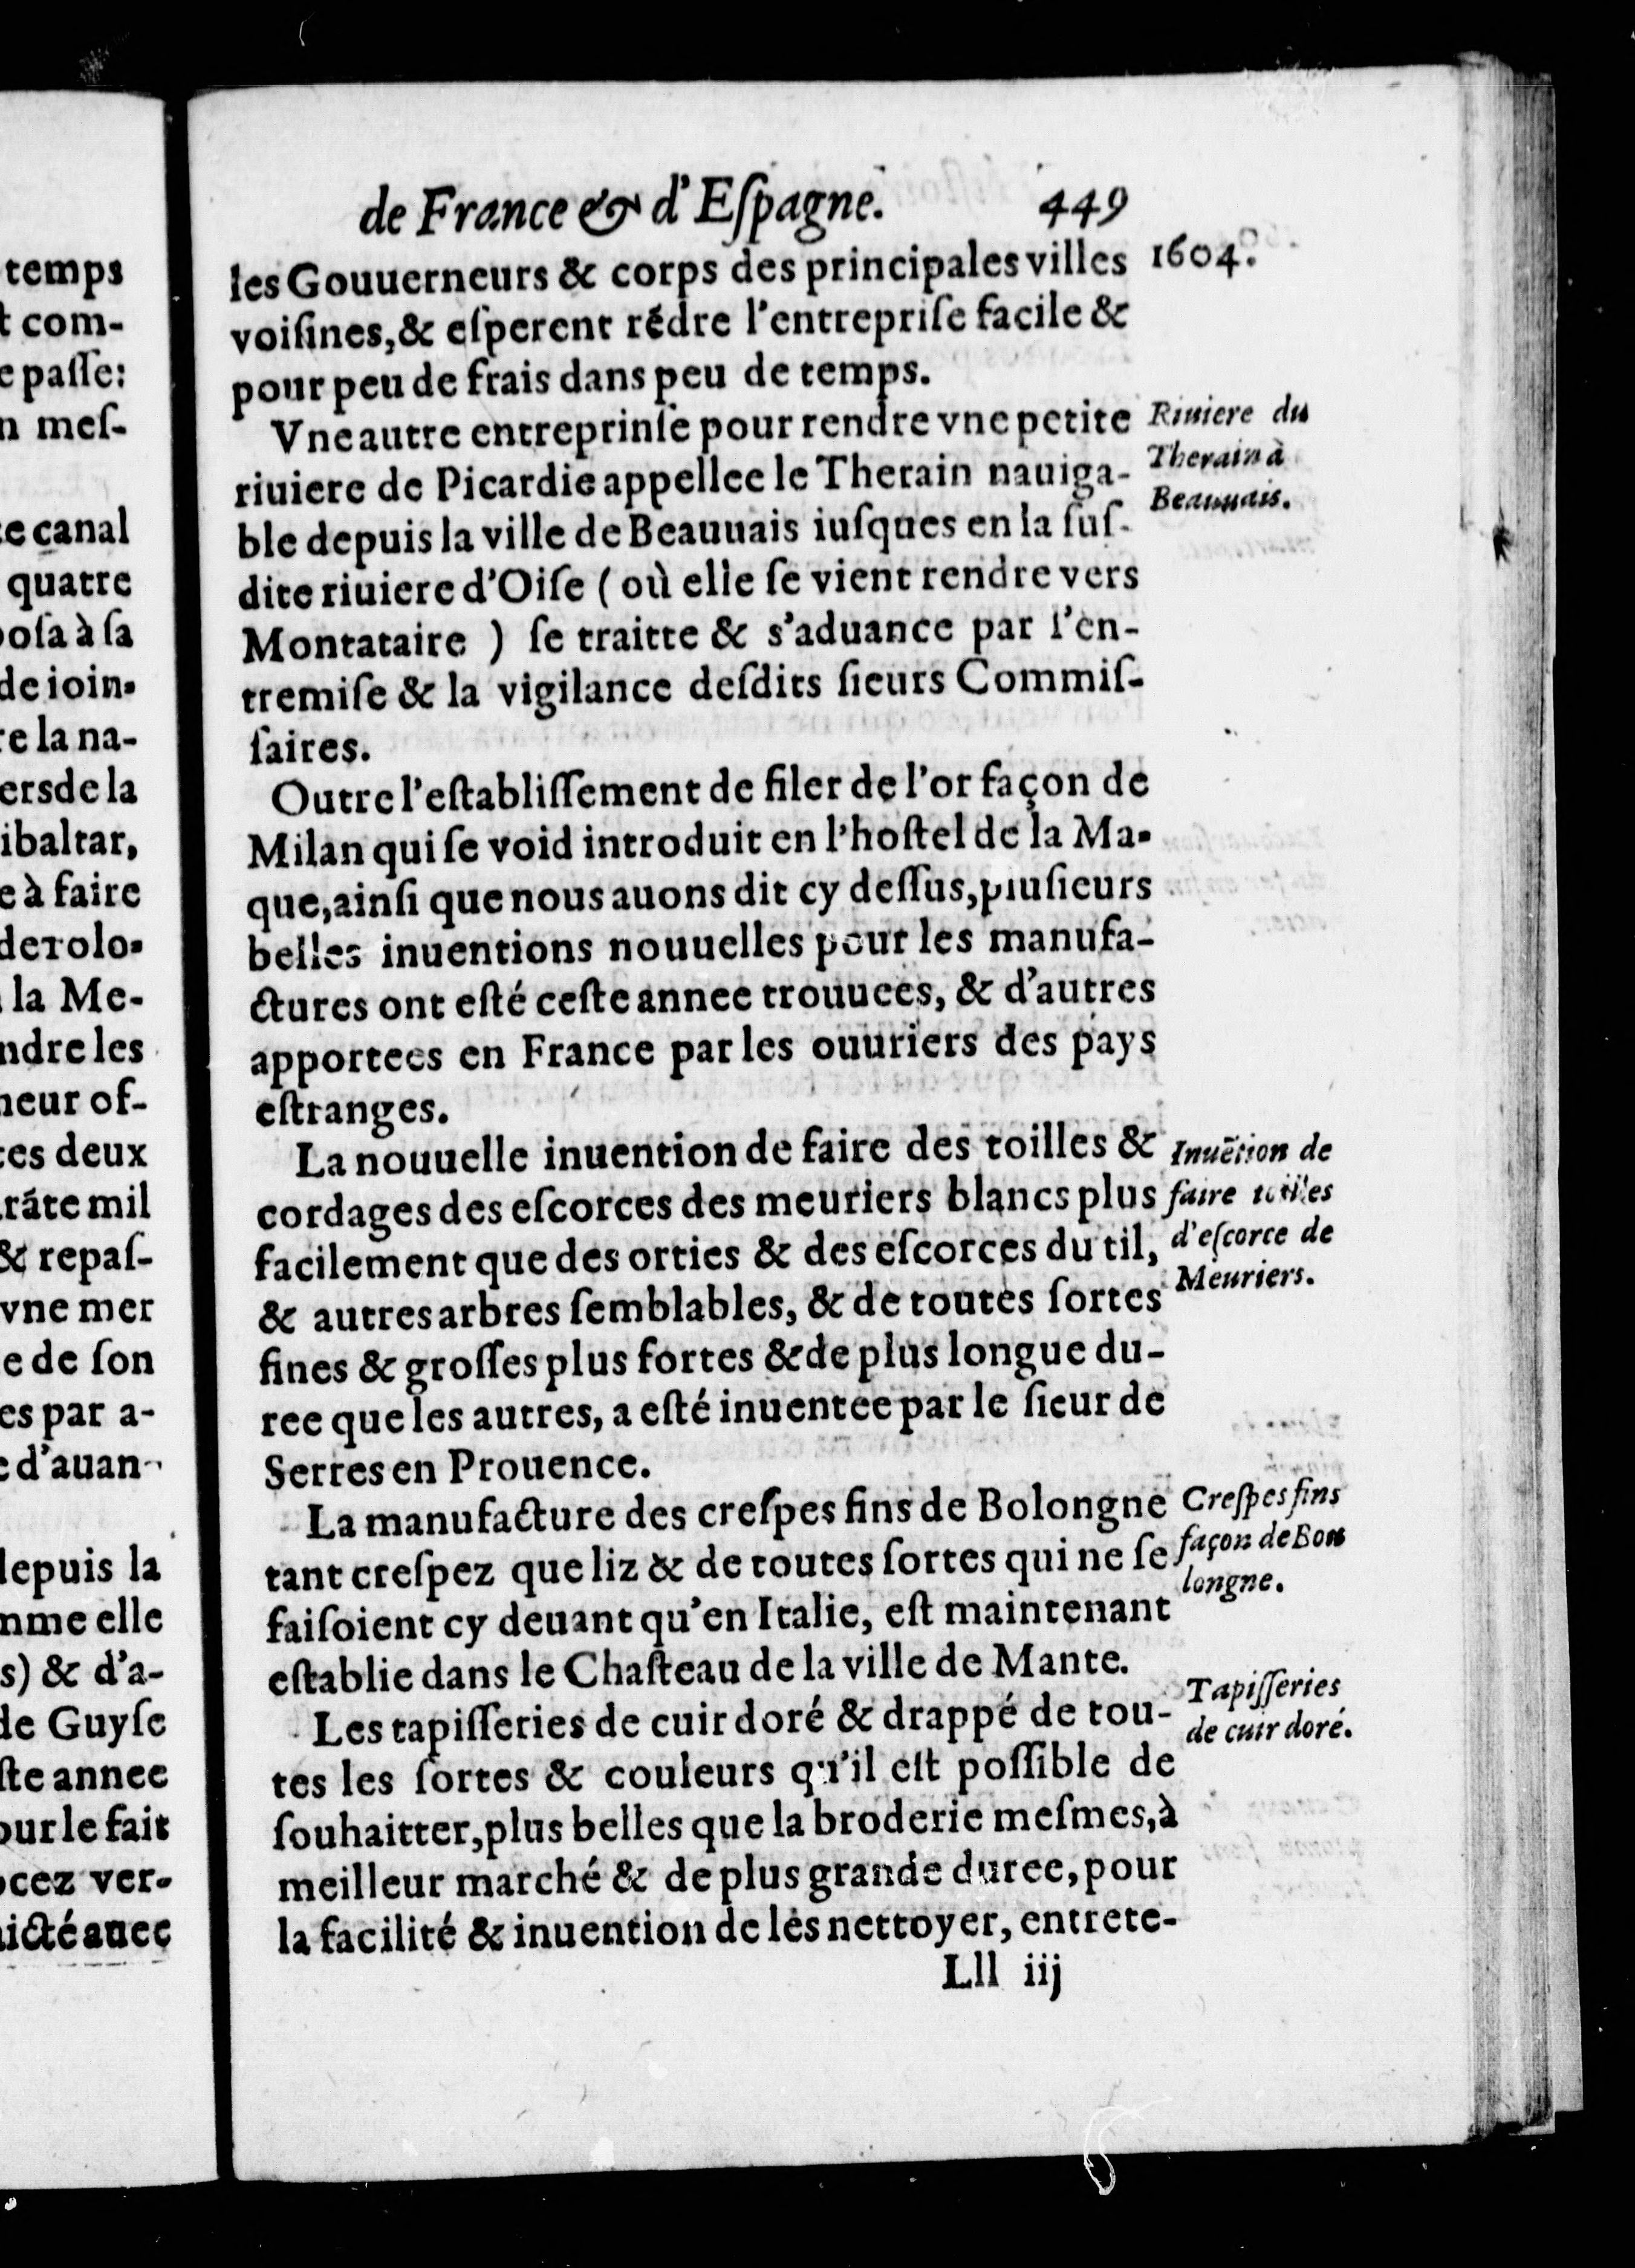 temps
t com-
e paſſe:
n meſ-
te canal
quatre
poſa à ſa
de ioin-
re la na-
ers de la
ibaltar,
e à faire
de Tolo-
la Me-
ndre les
neur of-
ces deux
râte mil
& repaſ-
vne mer
e de ſon
es par a-
e d'auan-
depuis la
mme elle
s) & d'a-
de Guyſe
ſte annee
our le fait
ocez ver-
icté auec
de France & d'Eſpagne. 449
les Gouuerneurs & corps des principales villes
1604.
voiſines, & eſperent rēdre l'entrepriſe facile &
pour peu de frais dans peu de temps.
Vne autre entreprinſe pour rendre vne petite
riuiere de Picardie appellee le Therain nauiga-
ble depuis la ville de Beauuais iuſques en la ſuſ-
dite riuiere d'Oiſe ( où elle ſe vient rendre vers
Montataire ) ſe traitte & s'aduance par l'en-
tremiſe & la vigilance deſdits ſieurs Commiſ-
ſaires.
Riuiere du
Therain à
Beauuais.
Outre l'eſtabliſſement de filer de l'or façon de
Milan qui ſe void introduit en l'hoſtel de la Ma-
que, ainſi que nous auons dit cy deſſus, pluſieurs
belles inuentions nouuelles pour les manufa-
ctures ont eſté ceſte annee trouuees, & d'autres
apportees en France par les ouuriers des pays
eſtranges.
La nouuelle inuention de faire des toilles &
cordages des eſcorces des meuriers blancs plus
facilement que des orties & des eſcorces du til,
& autres arbres ſemblables, & de toutes ſortes
fines & groſſes plus fortes & de plus longue du-
ree que les autres, a eſté inuentee par le ſieur de
Serres en Prouence.
Inuētion de
faire toilles
d'eſcorce de
Meuriers.
La manufacture des creſpes fins de Bolongne
tant creſpez que liz & de toutes ſortes qui ne ſe
faiſoient cy deuant qu'en Italie, eſt maintenant
eſtablie dans le Chaſteau de la ville de Mante.
Creſpes fins
façon de Bo-
longne.
Les tapiſſeries de cuir doré & drappé de tou-
tes les ſortes & couleurs qu'il eſt poſſible de
ſouhaitter, plus belles que la broderie meſmes, à
meilleur marché & de plus grande duree, pour
la facilité & inuention de les nettoyer, entrete-
Tapiſſeries
de cuir doré.
Lll iij